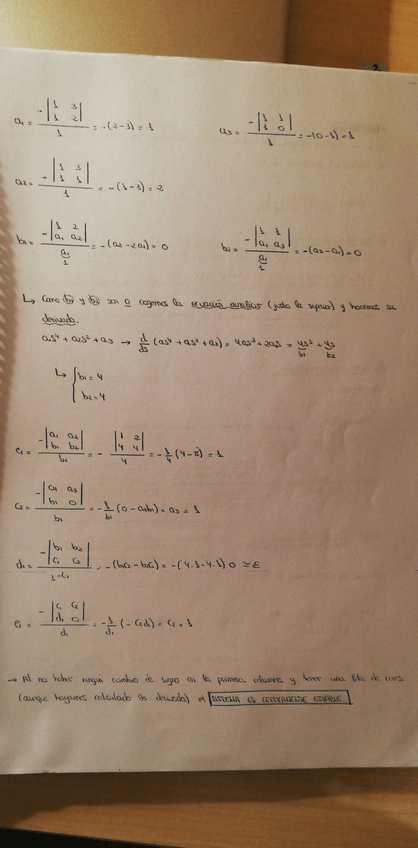 a₁ = -|1 3; 1 2| / 1 = -(2-3) = 1
a₃ = -|1 1; 1 0| / 1 = -(0-1) = 1
a₂ = -|1 3; 1 1| / 1 = -(1-3) = 2
b₁ = -|1 2; a₁ a₂| / a₁ = -(a₂-2a₁) = 0
b₂ = -|1 1; a₁ a₃| / a₁ = -(a₃-a₁) = 0
↳ Como b₁ y b₂ son 0 cogemos la ecuación auxiliar (justo la superior) y hacemos su
derivada.
a₁s⁴ + a₂s² + a₃ → d/ds (a₁s⁴ + a₂s² + a₃) = 4a₁s³ + 2a₂s = 4s³ + 4s
b₁ b₂
↳ { b₁ = 4
b₂ = 4
c₁ = -|a₁ a₂; b₁ b₂| / b₁ = - |1 2; 4 4| / 4 = -1/4 (4-8) = 1
c₂ = -|a₁ a₃; b₁ 0| / b₁ = -1/b₁ (0 - a₃b₁) = a₃ = 1
d₁ = -|b₁ b₂; c₁ c₂| / 1=c₁ = -(b₁c₂ - b₂c₁) = -(4·1-4·1) 0 ≃ ε
e₁ = -|c₁ c₂; d₁ 0| / d₁ = -1/d₁ (-c₂d₁) = c₂ = 1
→ Al no haber ningún cambio de signo en la primera columna y tener una fila de ceros
(aunque hayamos calculado la derivada) el SISTEMA ES CRÍTICAMENTE ESTABLE